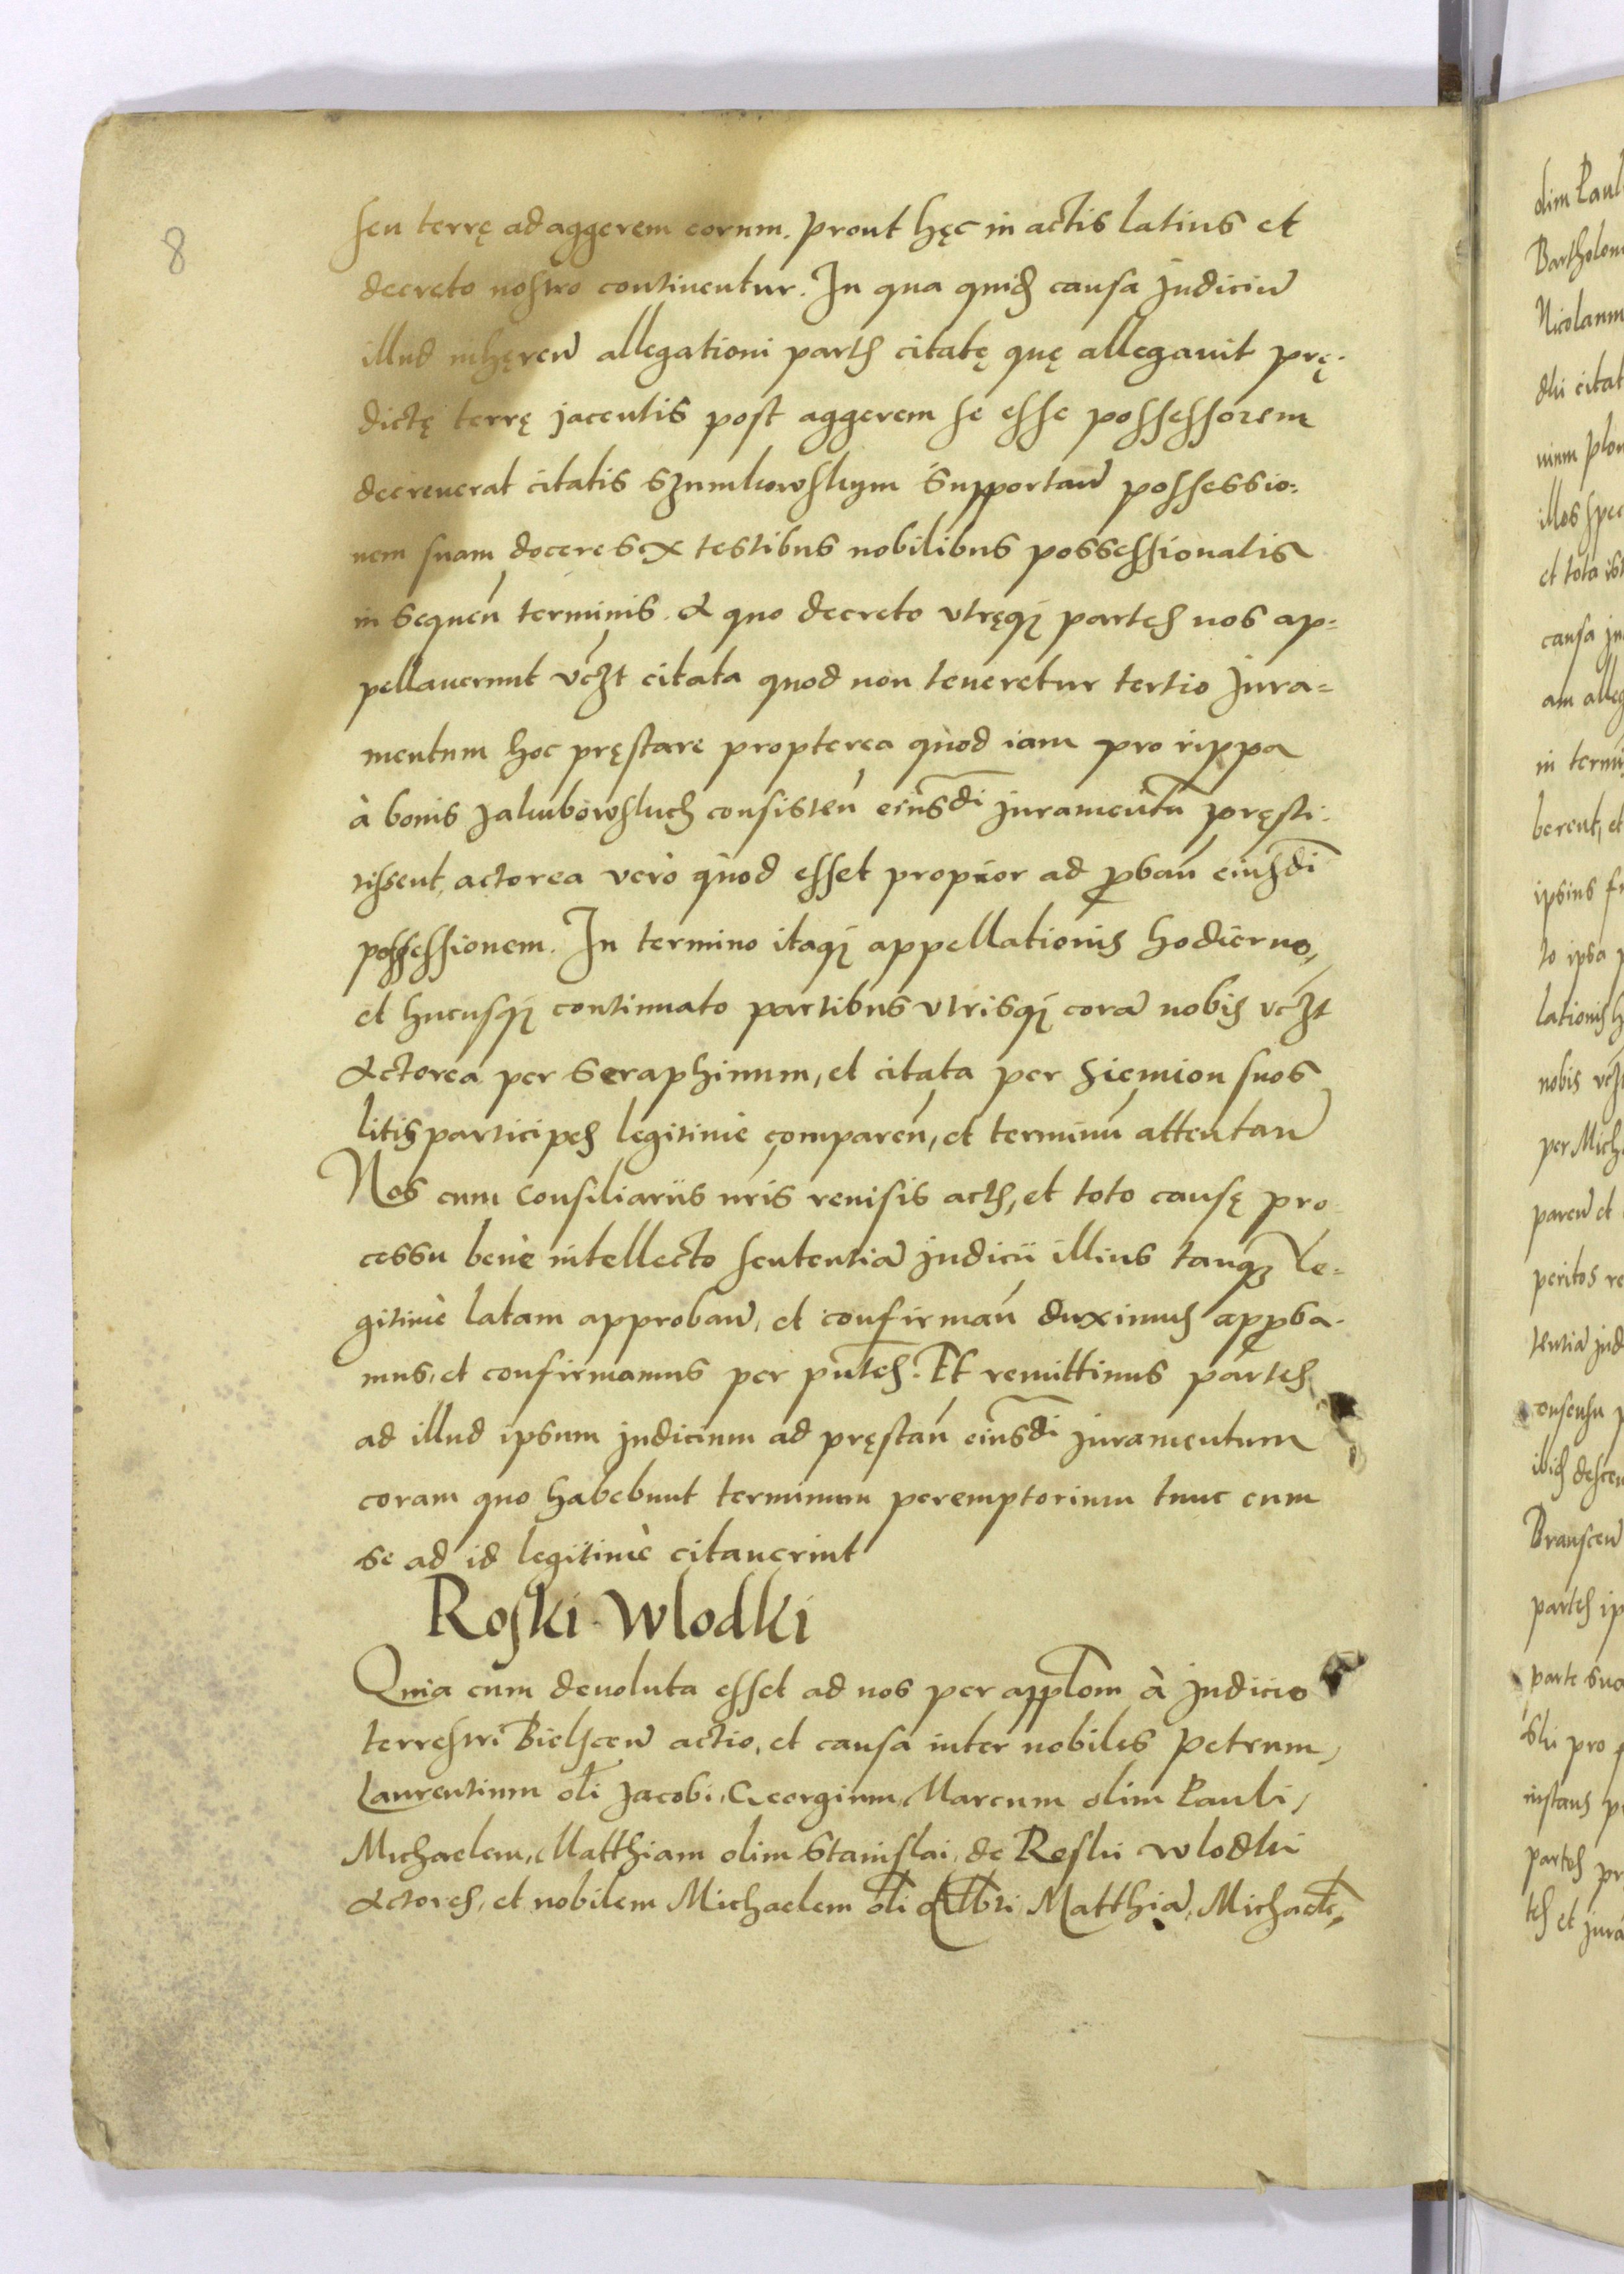 8
seu terrę ad aggerem eorum. prout hęc in actis latius et
decreto nostro continentur. In qua quid causa Judiciu
illud inhęren allegationi partis citatę quę allegavit prę-
dictę terrę jacentis post aggerem se esse possessorem
decreverat citatis Szumkowskym supportan possessio:
nem suam docere sex testibus nobilibus possessionatis
in sequen terminis. A quo decreto vtręq partes nos ap:
pellaverunt vczt citata quod non teneretur tertio Jura=
mentum hoc pręstare propterea quod iam pro rippa
à bonis Jakubowskich consisten eiusdi Juramentu pręsti:
tissent, actorea verò quod esset propior ad pban eiusdi
possessionem. In termino itaq appellationis hodierno,
et hucusq continuato partibus vtrisq cora nobis vczt
Actorea per Seraphinum, et citata per Siemion suos
litis participes legitime comparen, et terminu attentan
Nos cum Consiliariis nris revisis actis, et toto causę pro
cessu bene intellecto sententia Judicii illius tanq le=
gitimè latam approban, et confirman duximus appba-
mus, et confirmamus per pntes. Et remittimus partes
ad illud ipsum Judicium ad pręstan eiusdi Juramentum
coram quo habebunt terminum peremptorium tunc cum
se ad id legitimè citaverint
Roski Wlodki
Quia cum devoluta esset ad nos per applom à Judicio
terrestri Bielscen actio, et causa inter nobiles Petrum,
Laurentium oli Jacobi, Georgium, Marcum olim Pauli,
Michaelem, Matthiam olim Stanislai, de Roski wlodki
Actores, et nobilem Michaelem oli Albti Matthia, Michaele,
olim Paul
Bartholom
Nicolaum
dki citat
illos spec
et tota
causa ju
am alleg
in termi
berent, et
ipsius
to ipsa
lationis h
nobis vczt
per Mich
paren et
peritos re
tentia jud
consensu
Branscen
partes ip
parte sua
ski pro
instans
partes pr
tes et jura